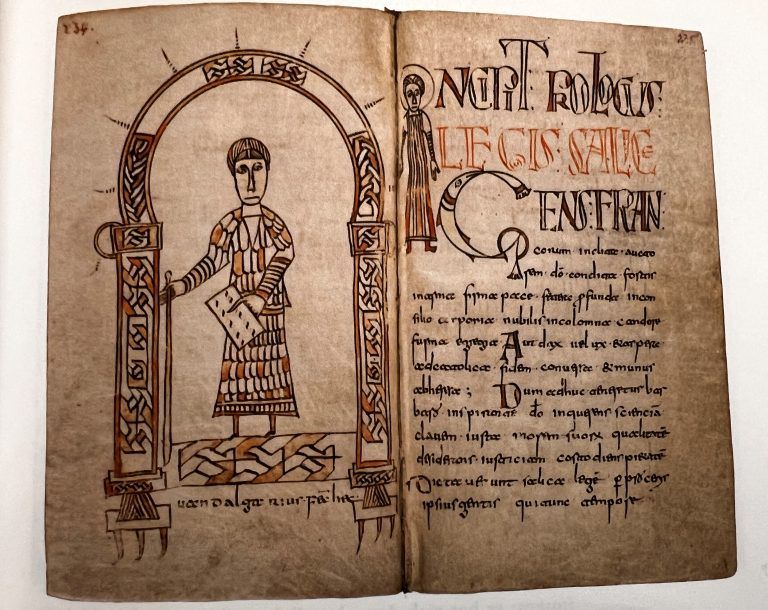 234
uuandalgarius fec hec
235
INCIPIT PROLOGUS
LEGIS SALICE
GENS FRAN
corum inclita aucto
rem do condita fortis
in arma firma pace
silio corporia nubilis incolomna candore
furma egregia Audax uelux et aspera
fidem conuersa et munus
ab heresa ; Dum adhuc teneretur bar
bara inspirante do inquerens sciencia
clauem iusta morem suorum qualitatem
desiderans iusticiam costodiens pietatem
Dictauerunt salica lege per proceris
ipsius gentis qui tunc tempore